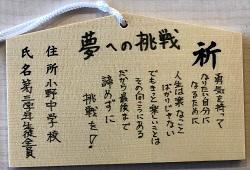 祈
夢への挑戦
勇気を持って
なりたい自分に
なるために
人生は楽なことば
かりじゃない
でもきっと楽しいことは
その向こうにある
だから最後まで
諦めずに
挑戦を!
住所 小野中学校
氏名 第三学年生徒全員